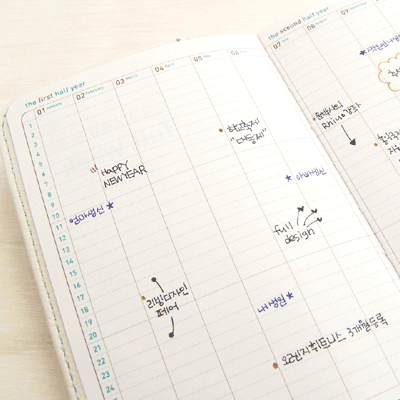 the first half year
01 January
02 February
03 March
04 April
05
06
1
2
3
4
5
6
7
8
9
10
11
12
13
14
15
16
17
18
19
20
21
22
23
24
HAPPY
NEW YEAR
엄마생신 ★
리빙디자인
페어
"대동제"
★ 아빠생신
full
design
나생일 ★
오렌지휘트니스 3개월등록
the second half year
07 July
08
09
Rhino강좌